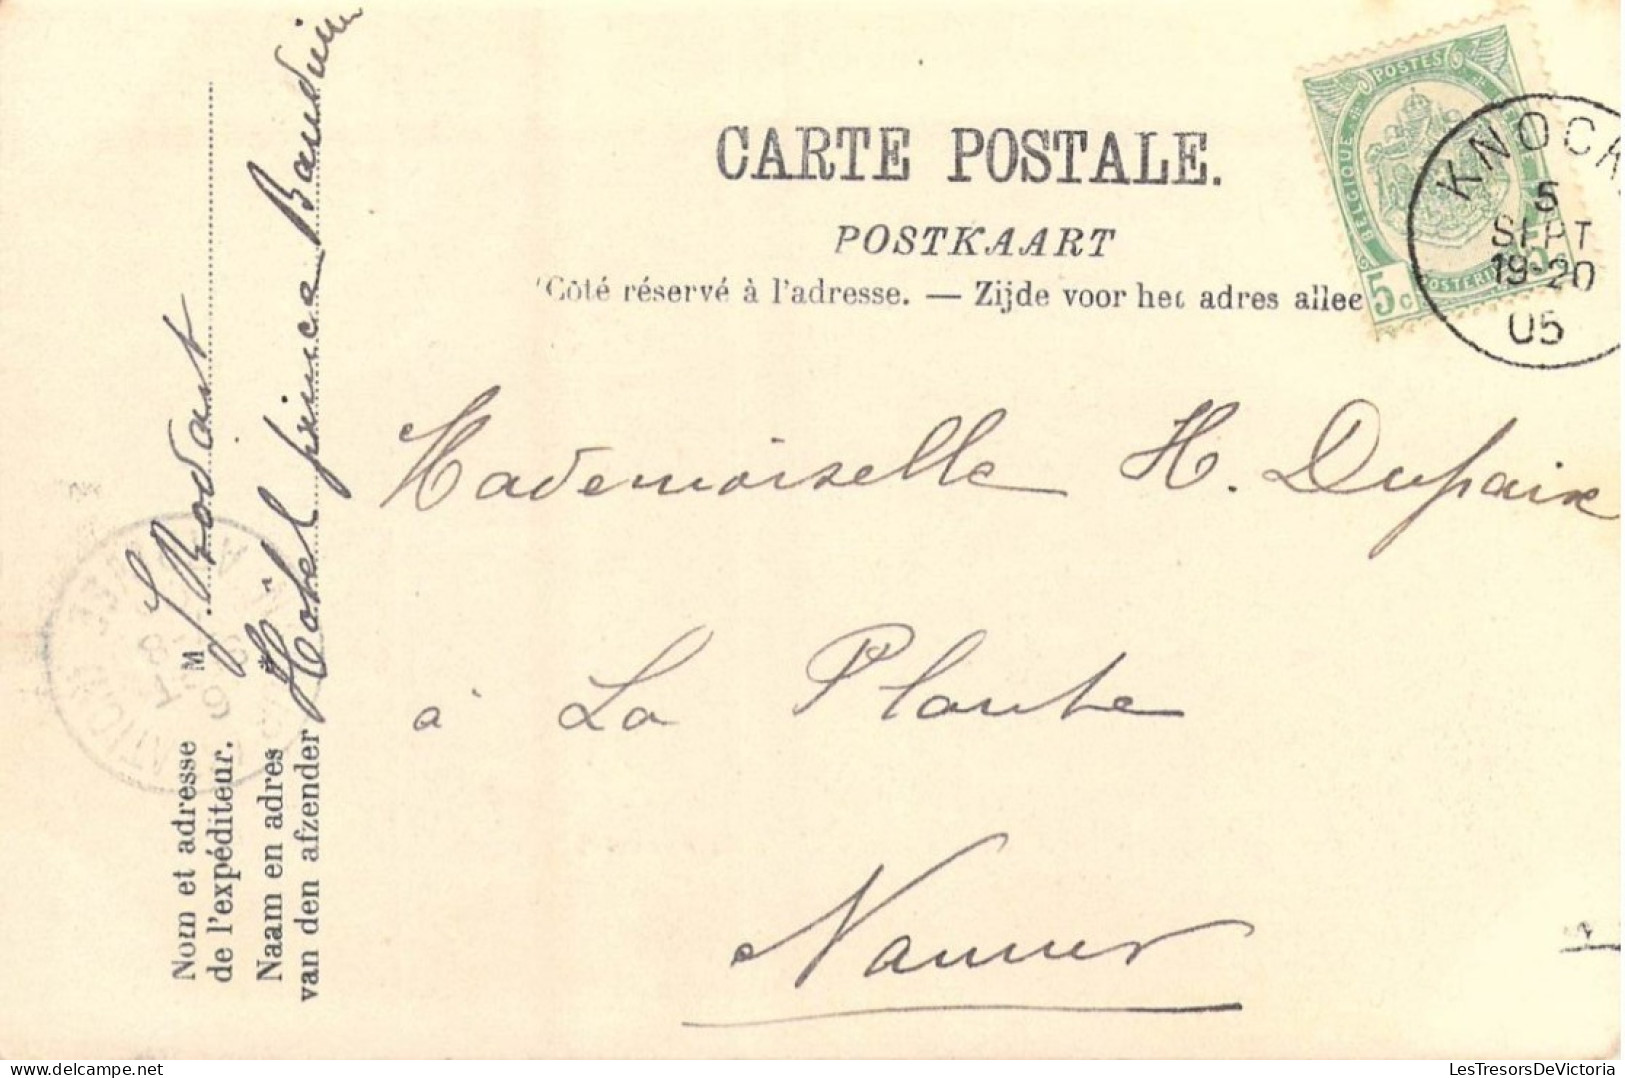 CARTE POSTALE.
POSTKAART
Côté réservé à l'adresse. — Zijde voor het adres allee
POSTES
BELGIQUE
5 c
KNOCK
5
SEPT
19-20
05
Mademoiselle H. Dupaix
à La Plante
Namur
Nom et adresse
de l'expéditeur.
Naam en adres
van den afzender
M J. Rodart
Hotel prince Baudouin
delcampe.net
LesTresorsDeVictoria